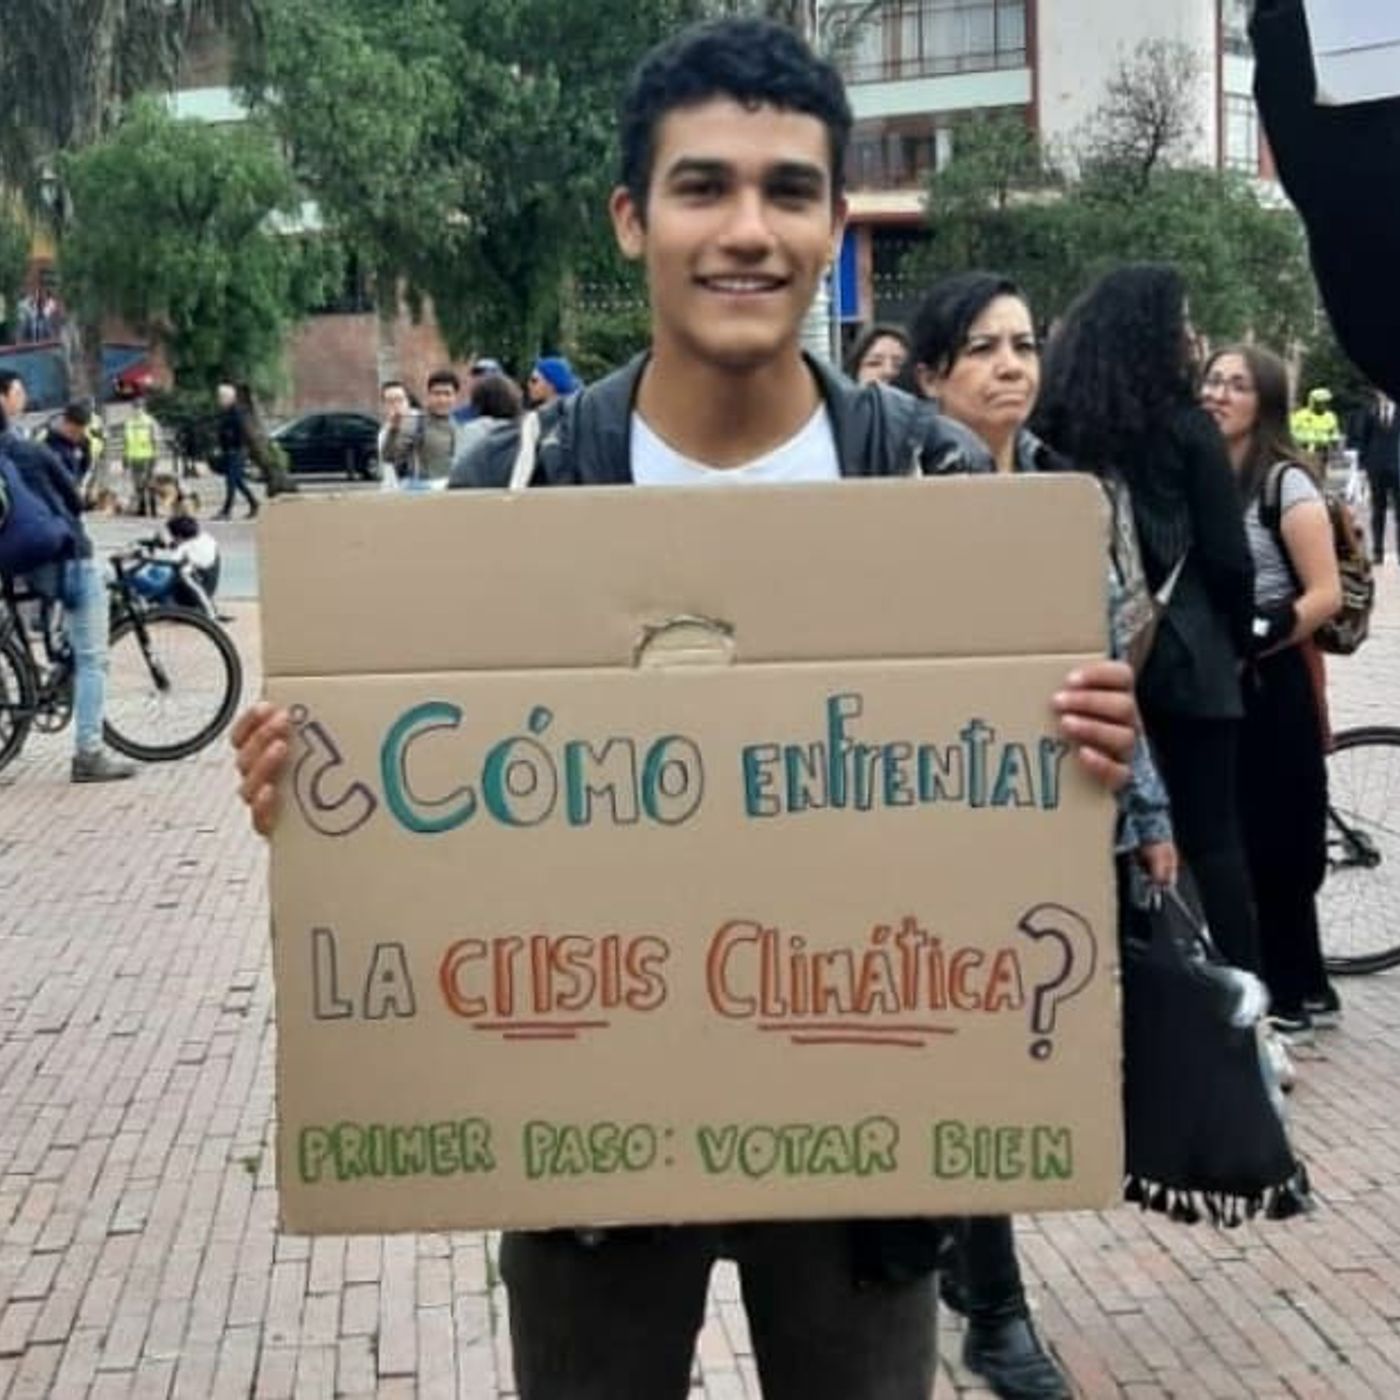 ¿CÓMO ENFRENTAR
LA CRISIS CLIMÁTICA?
PRIMER PASO: VOTAR BIEN